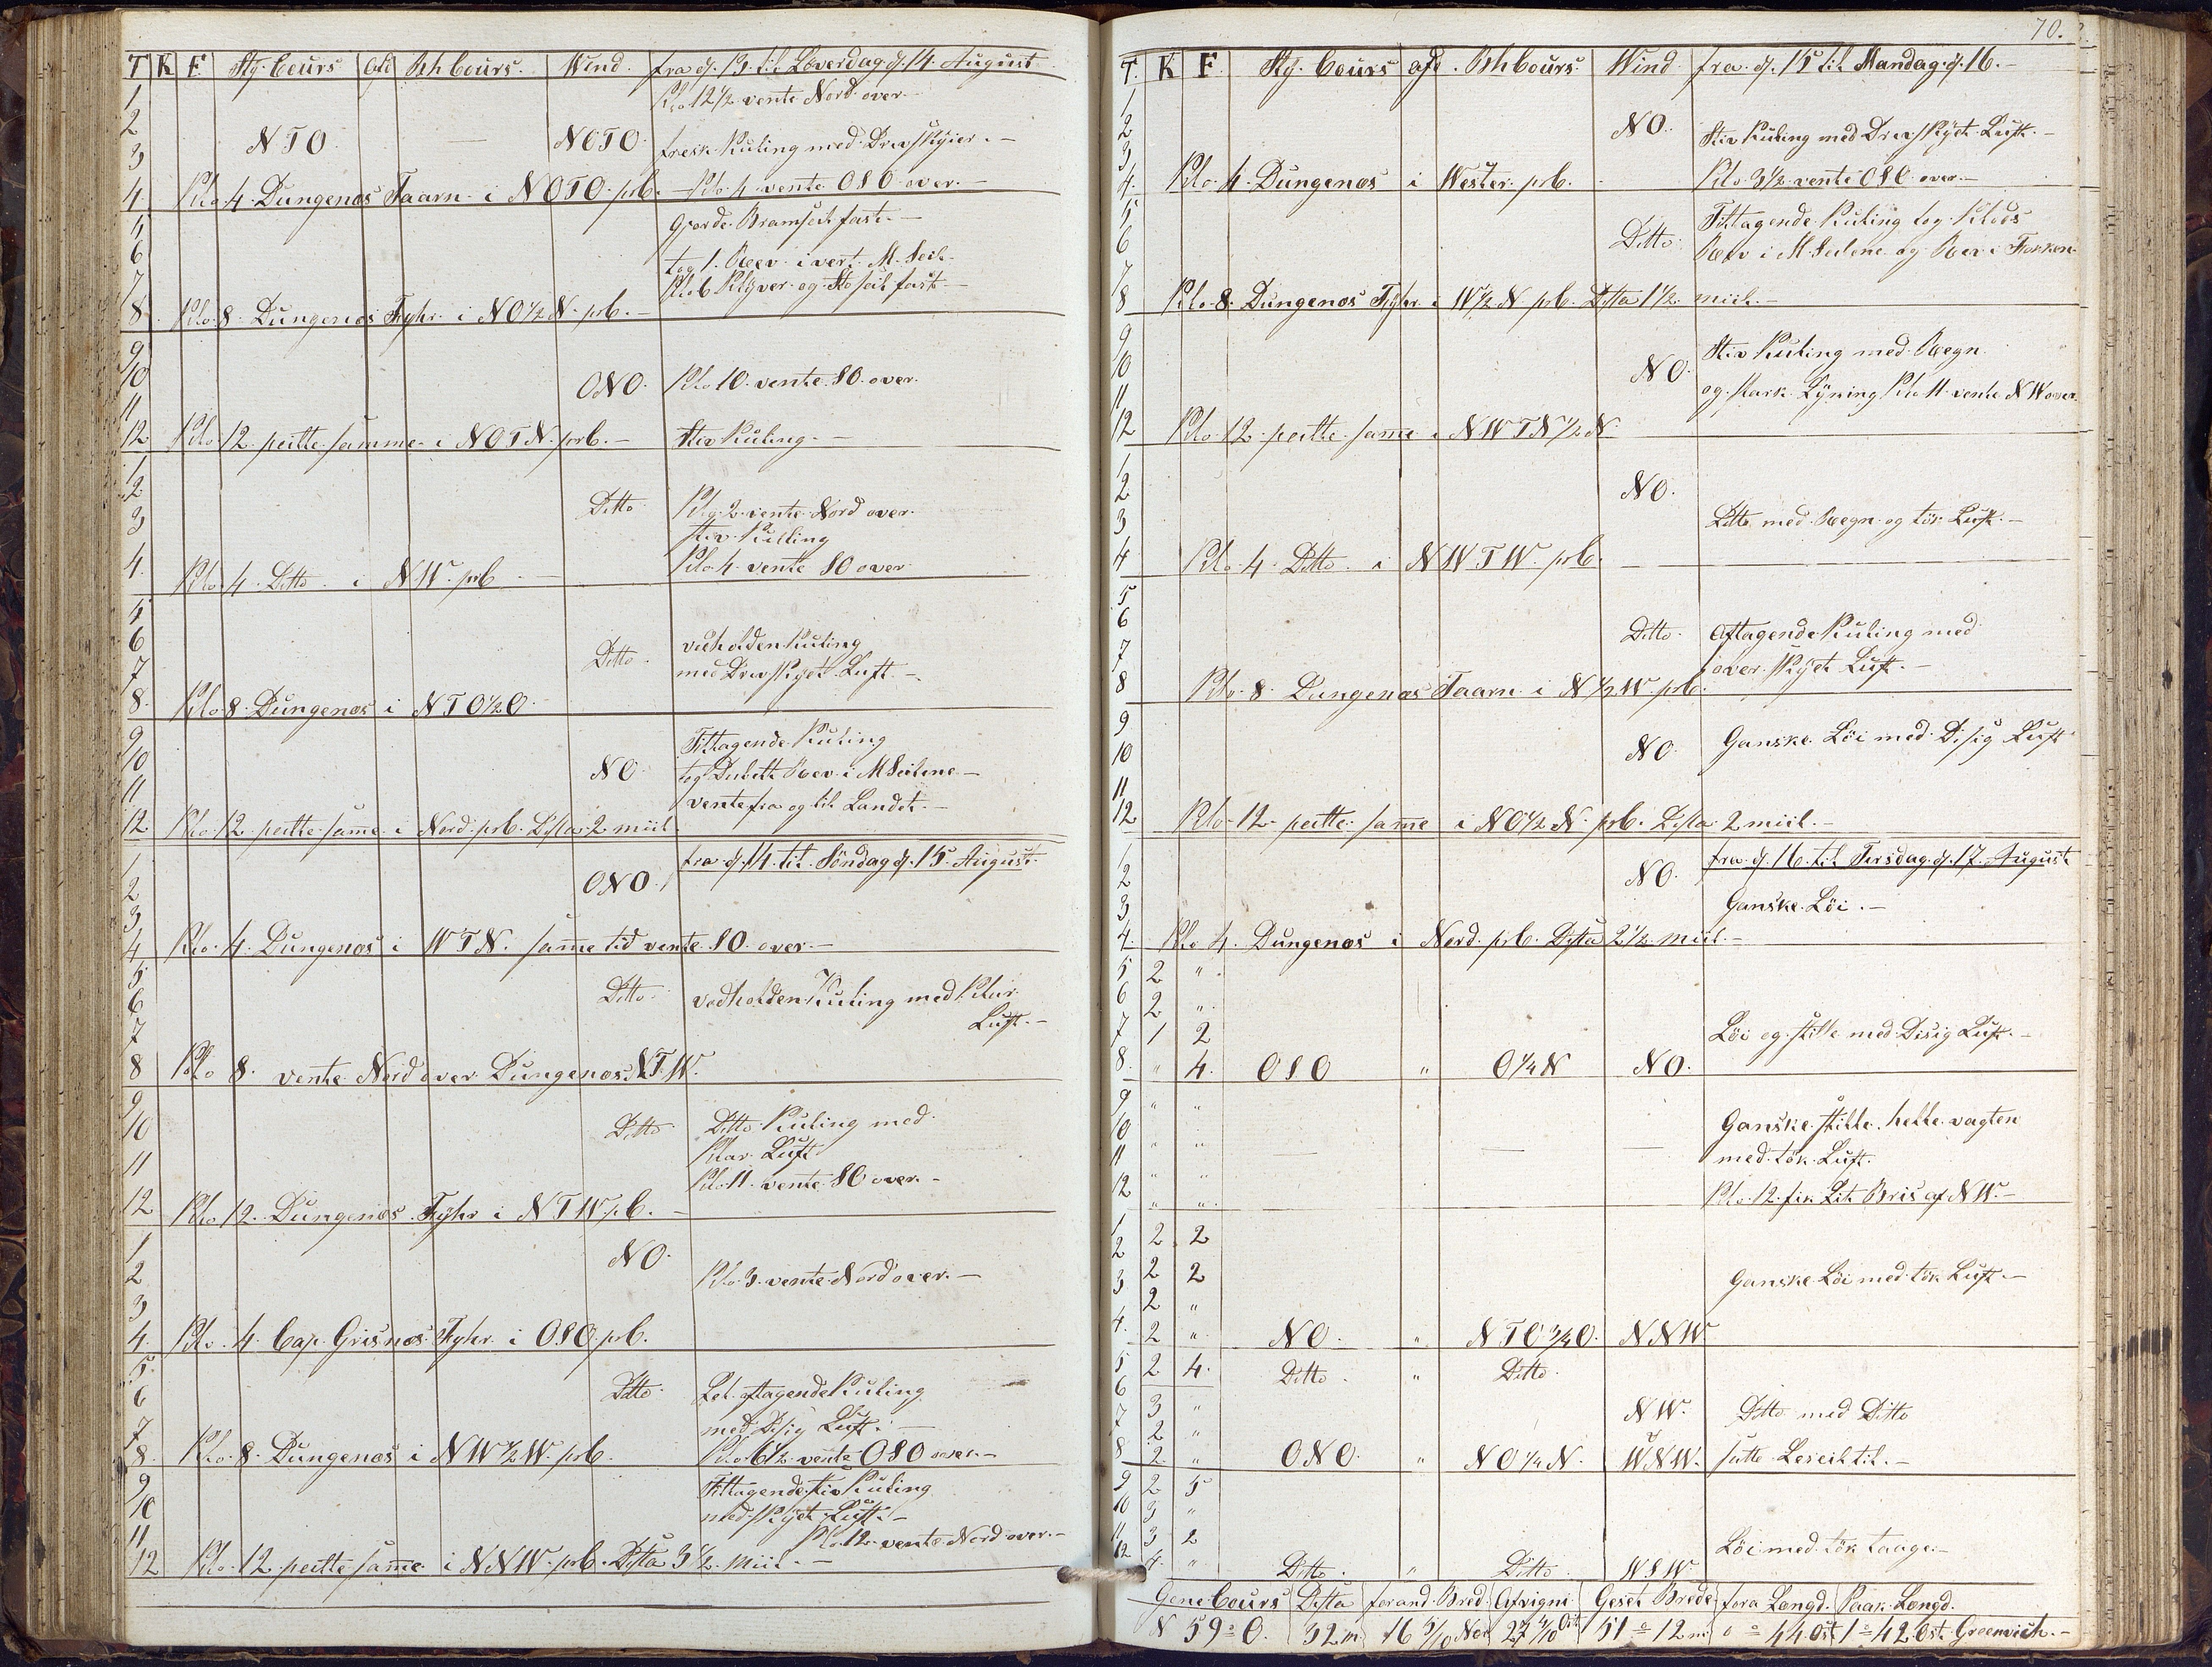 T K F Stÿ. Cours Afd Bh Cours. Wind. fra d. 13. til Løverdag d. 14. August
1 Klo 12 1/2 vente Nord over.-
2 NTO. — NOTO.
3 fresk Kuling med Drivskÿier.-
4. Klo 4. Dungenæs Taarn i NOTO. prb.- Klo 4 vente OSO over.-
5 Giorde Bramseil fast.-
6 tog 1. Reev i vert. M. Seil.
7 Klo 6 Klÿver og Sto seil fast.-
8. Klo. 8. Dungenæs Fyhr. i NO 1/2 N. prb.-
9
10 ONO. Klo 10. vente. SO. over.
11
12 Klo 12. peilte samme i NOTN. prb.- Stiv Kuling.-
1
2 Ditto Klo. 2. vente Nord over.
3 stiv Kuling
4. Klo. 4. Ditto i NW. prb - Klo. 4. vente SO over
5
6 vedholden Kuling
7 Ditto. med Drivskÿet Luft.-
8. Klo 8. Dungenæs i NTO 1/2 O.
9 Tiltagende Kuling
10 NO. tog Dubelt Reev i M Seilene.-
11 vente fra og til Landet.-
12 Klo. 12. peilte same i Nord. prb. Dista 2 miil.
1 fra d. 14. til Søndag d. 15. August.
2 ONO.
3
4 Klo. 4. Dungenæs i WTN. same tid vente. SO. over.-
5
6 Ditto. vedholden Kuling med Klar
7 Luft.-
8 Klo 8. vente Nord over Dungenæs i NTW.
9
10 Ditto Ditto Kuling med
Klar Luft
11 Klo 11. vente SO over.-
12 Klo 12. Dungenæs Fÿhr i NTW prb.-
1 NO.
2 Klo. 3. vente Nord over.-
3
4. Klo. 4. Cap Grisnæs Fyhr. i OSO prb.
5.
6 Ditto. Let. aftagende Kuling
7 med Disig Luft.-
8. Klo. 8. Dungenæs i NW 1/2 W. prb. Klo 6 1/2 vente OSO over.-
9 Tiltagende stiv Kuling
10 med skÿet Luft.-
11 Klo. 12. vente Nord over.-
12 Klo. 12. peilte same i NNW. prb. Dista 3 1/2 Miil.-
70.
T. K F. Stÿ. Cours afd. Bh Cours. Wind fra. d. 15 til Mandag. d. 16.-
1
2 NO. Stiv Kuling med Drivskÿet Luft.-
3
4. Klo. 4. Dungenæs i Wester. prb. Klo. 3 1/2 vente OSO over.-
5 Tiltagende Kuling tog Kloss
6 Ditto. Reev i M Seilene og Reev i Fokken
7
8 Klo 8. Dungenæs Fÿhr i W 1/2 N prb. Dista 1 1/2 miil.-
9 Stiv Kuling med Regn
10 NO.
11 og stark Lÿning Klo 11 vente NW over.
12 Klo. 12. peilte. same i NWTN 1/2 N.
1
2 NO.
3 Ditto med Regn og tök Luft.-
4 Klo. 4. Ditto. i NWTW. prb.
5
6 Ditto. Aftagende Kuling med
7 over skÿet Luft.-
8 Klo. 8. Dungenæs Taarn i N 1/2 W prb.
9
10 NO. Ganske Löi med Disig Luft
11
12 Klo. 12. peilte same i NO 1/2 N. prb. Dista 2 miil.-
1 fra. d. 16. til Tirsdag. d. 17. August
2 NO.
3 Ganske Löi.-
4. Klo 4. Dungenæs i Nord. prb. Dista 2 1/2 miil.-
5 2 "
6 2 "
7 1 2 Löi og stille med Disig Luft.-
8. " 4. OSO " O 1/4 N NO.
9 " " Ganske stille. helle vagten
10 " " — — — med. tök Luft.
11 " "
12 " " Klo. 12. fik Lit Bris af NW.-
1 2 2
2 2 2 Ganske Löi med tök Luft.-
3 2 "
4. 2 " NO. " NTO 3/4 O. NNW
5 2 4. Ditto. " Ditto.
6 3 " NW. Ditto med Ditto
7 2 "
8 2. " ONO. " NO 1/4 N. WNW. satte Leseil til.-
9 2 5
10 3 "
11 3 2 Löi med tök taage.-
12 4. " Ditto. " Ditto. WSW.
Gene Cours Dista forand. Bred. Afvigni. Geset Brede fora Længd. Paak. Længd.
N 59° O. 32 m. 16 5/10 Nor 27 4/10 Ost 51° 12 m. 0° 44 Ost 1° 42 Ost. Greenwich.-